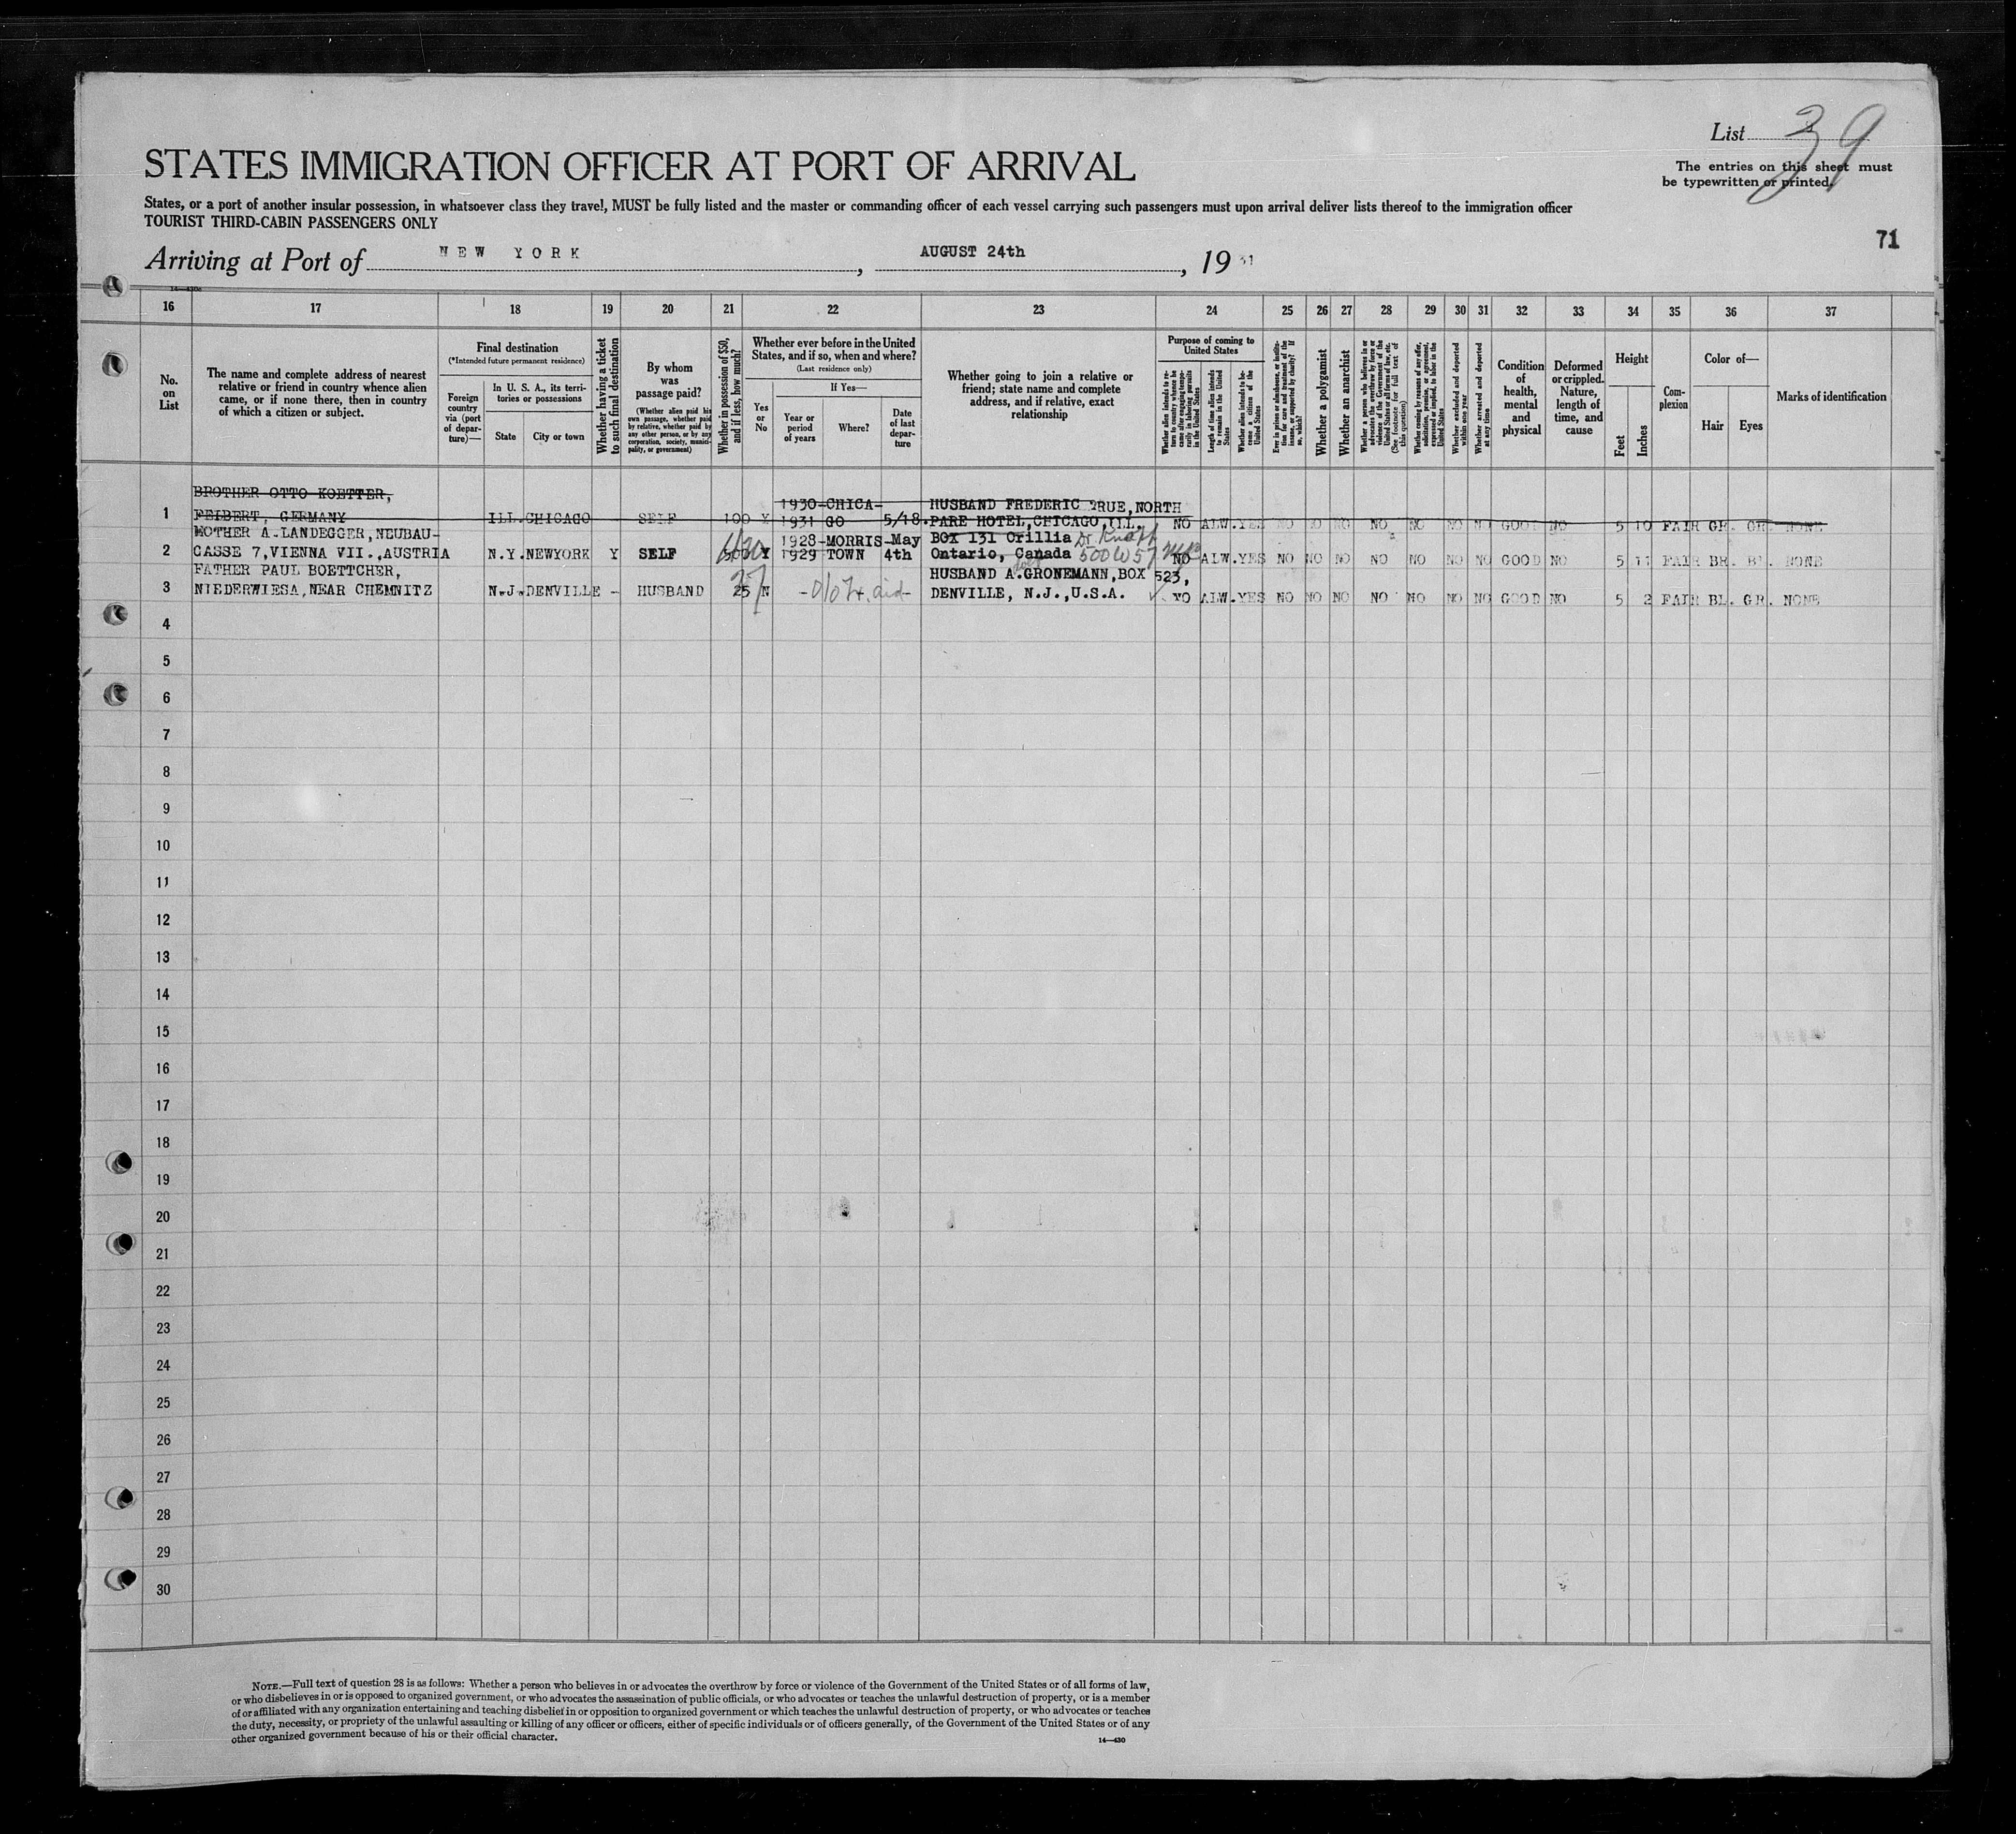 List 39
STATES IMMIGRATION OFFICER AT PORT OF ARRIVAL
The entries on this sheet must
be typewritten or printed.
States, or a port of another insular possession, in whatsoever class they travel, MUST be fully listed and the master or commanding officer of each vessel carrying such passengers must upon arrival deliver lists thereof to the immigration officer
TOURIST THIRD-CABIN PASSENGERS ONLY
71
Arriving at Port of NEW YORK, AUGUST 24th, 1931
16 17 18 19 20 21 22 23 24 25 26 27 28 29 30 31 32 33 34 35 36 37
No.
on
List
The name and complete address of nearest
relative or friend in country whence alien
came, or if none there, then in country
of which a citizen or subject.
Final destination
(*Intended future permanent residence)
Foreign
country
via (port
of depar-
ture)—
In U. S. A., its terri-
tories or possessions
State
City or town
Whether having a ticket
to such final destination
By whom
was
passage paid?
(Whether alien paid his
own passage, whether paid
by relative, whether paid by
any other person, or by any
corporation, society, munici-
pality, or government)
Whether in possession of $50,
and if less, how much?
Whether ever before in the United
States, and if so, when and where?
(Last residence only)
Yes
or
No
If Yes—
Year or
period
of years
Where?
Date
of last
depar-
ture
Whether going to join a relative or
friend; state name and complete
address, and if relative, exact
relationship
Purpose of coming to
United States
Whether alien intends to re-
turn to country whence he
came after engaging tempo-
rarily in laboring pursuits
in the United States
Length of time alien intends
to remain in the United
States
Whether alien intends to be-
come a citizen of the
United States
Ever in prison or almshouse, or institu-
tion for care and treatment of the
insane, or supported by charity? If
so, which?
Whether a polygamist
Whether an anarchist
Whether a person who believes in or
advocates the overthrow by force or
violence of the Government of the
United States or all forms of law, etc.
(See footnote for full text of
this question)
Whether coming by reasons of any offer,
solicitation, promise, or agreement,
expressed or implied, to labor in the
United States
Whether excluded and deported
within one year
Whether arrested and deported
at any time
Condition
of
health,
mental
and
physical
Deformed
or crippled.
Nature,
length of
time, and
cause
Height
Feet
Inches
Com-
plexion
Color of—
Hair
Eyes
Marks of identification
BROTHER OTTO KOETTER, 1930-CHICA- HUSBAND FREDERIC TRUE, NORTH
1 FELBERT, GERMANY ILL. CHICAGO SELF 100 Y 1931 GO 5/18. PARE HOTEL, CHICAGO, ILL. NO ALW. YES NO NO NO NO NO NO NO GOOD NO 5 10 FAIR GR. GR. NONE
MOTHER A. LANDEGGER, NEUBAU- 1928-MORRIS-May BOX 131 Orillia Dr Knapp
2 GASSE 7, VIENNA VII., AUSTRIA N.Y. NEWYORK Y SELF 500 Y 1929 TOWN 4th Ontario, Canada 500 W 57 NO ALW. YES NO NO NO NO NO NO NO GOOD NO 5 11 FAIR BR. BL. NONE
FATHER PAUL BOETTCHER, HUSBAND A. GRONEMANN, BOX 523,
3 NIEDERWIESA, NEAR CHEMNITZ N.J. DENVILLE - HUSBAND 25 N DENVILLE, N.J., U.S.A. NO ALW. YES NO NO NO NO NO NO NO GOOD NO 5 2 FAIR BL. GR. NONE
4
5
6
7
8
9
10
11
12
13
14
15
16
17
18
19
20
21
22
23
24
25
26
27
28
29
30
NOTE.—Full text of question 28 is as follows: Whether a person who believes in or advocates the overthrow by force or violence of the Government of the United States or of all forms of law,
or who disbelieves in or is opposed to organized government, or who advocates the assassination of public officials, or who advocates or teaches the unlawful destruction of property, or is a member
of or affiliated with any organization entertaining and teaching disbelief in or opposition to organized government or which teaches the unlawful destruction of property, or who advocates or teaches
the duty, necessity, or propriety of the unlawful assaulting or killing of any officer or officers, either of specific individuals or of officers generally, of the Government of the United States or of any
other organized government because of his or their official character.
14—430